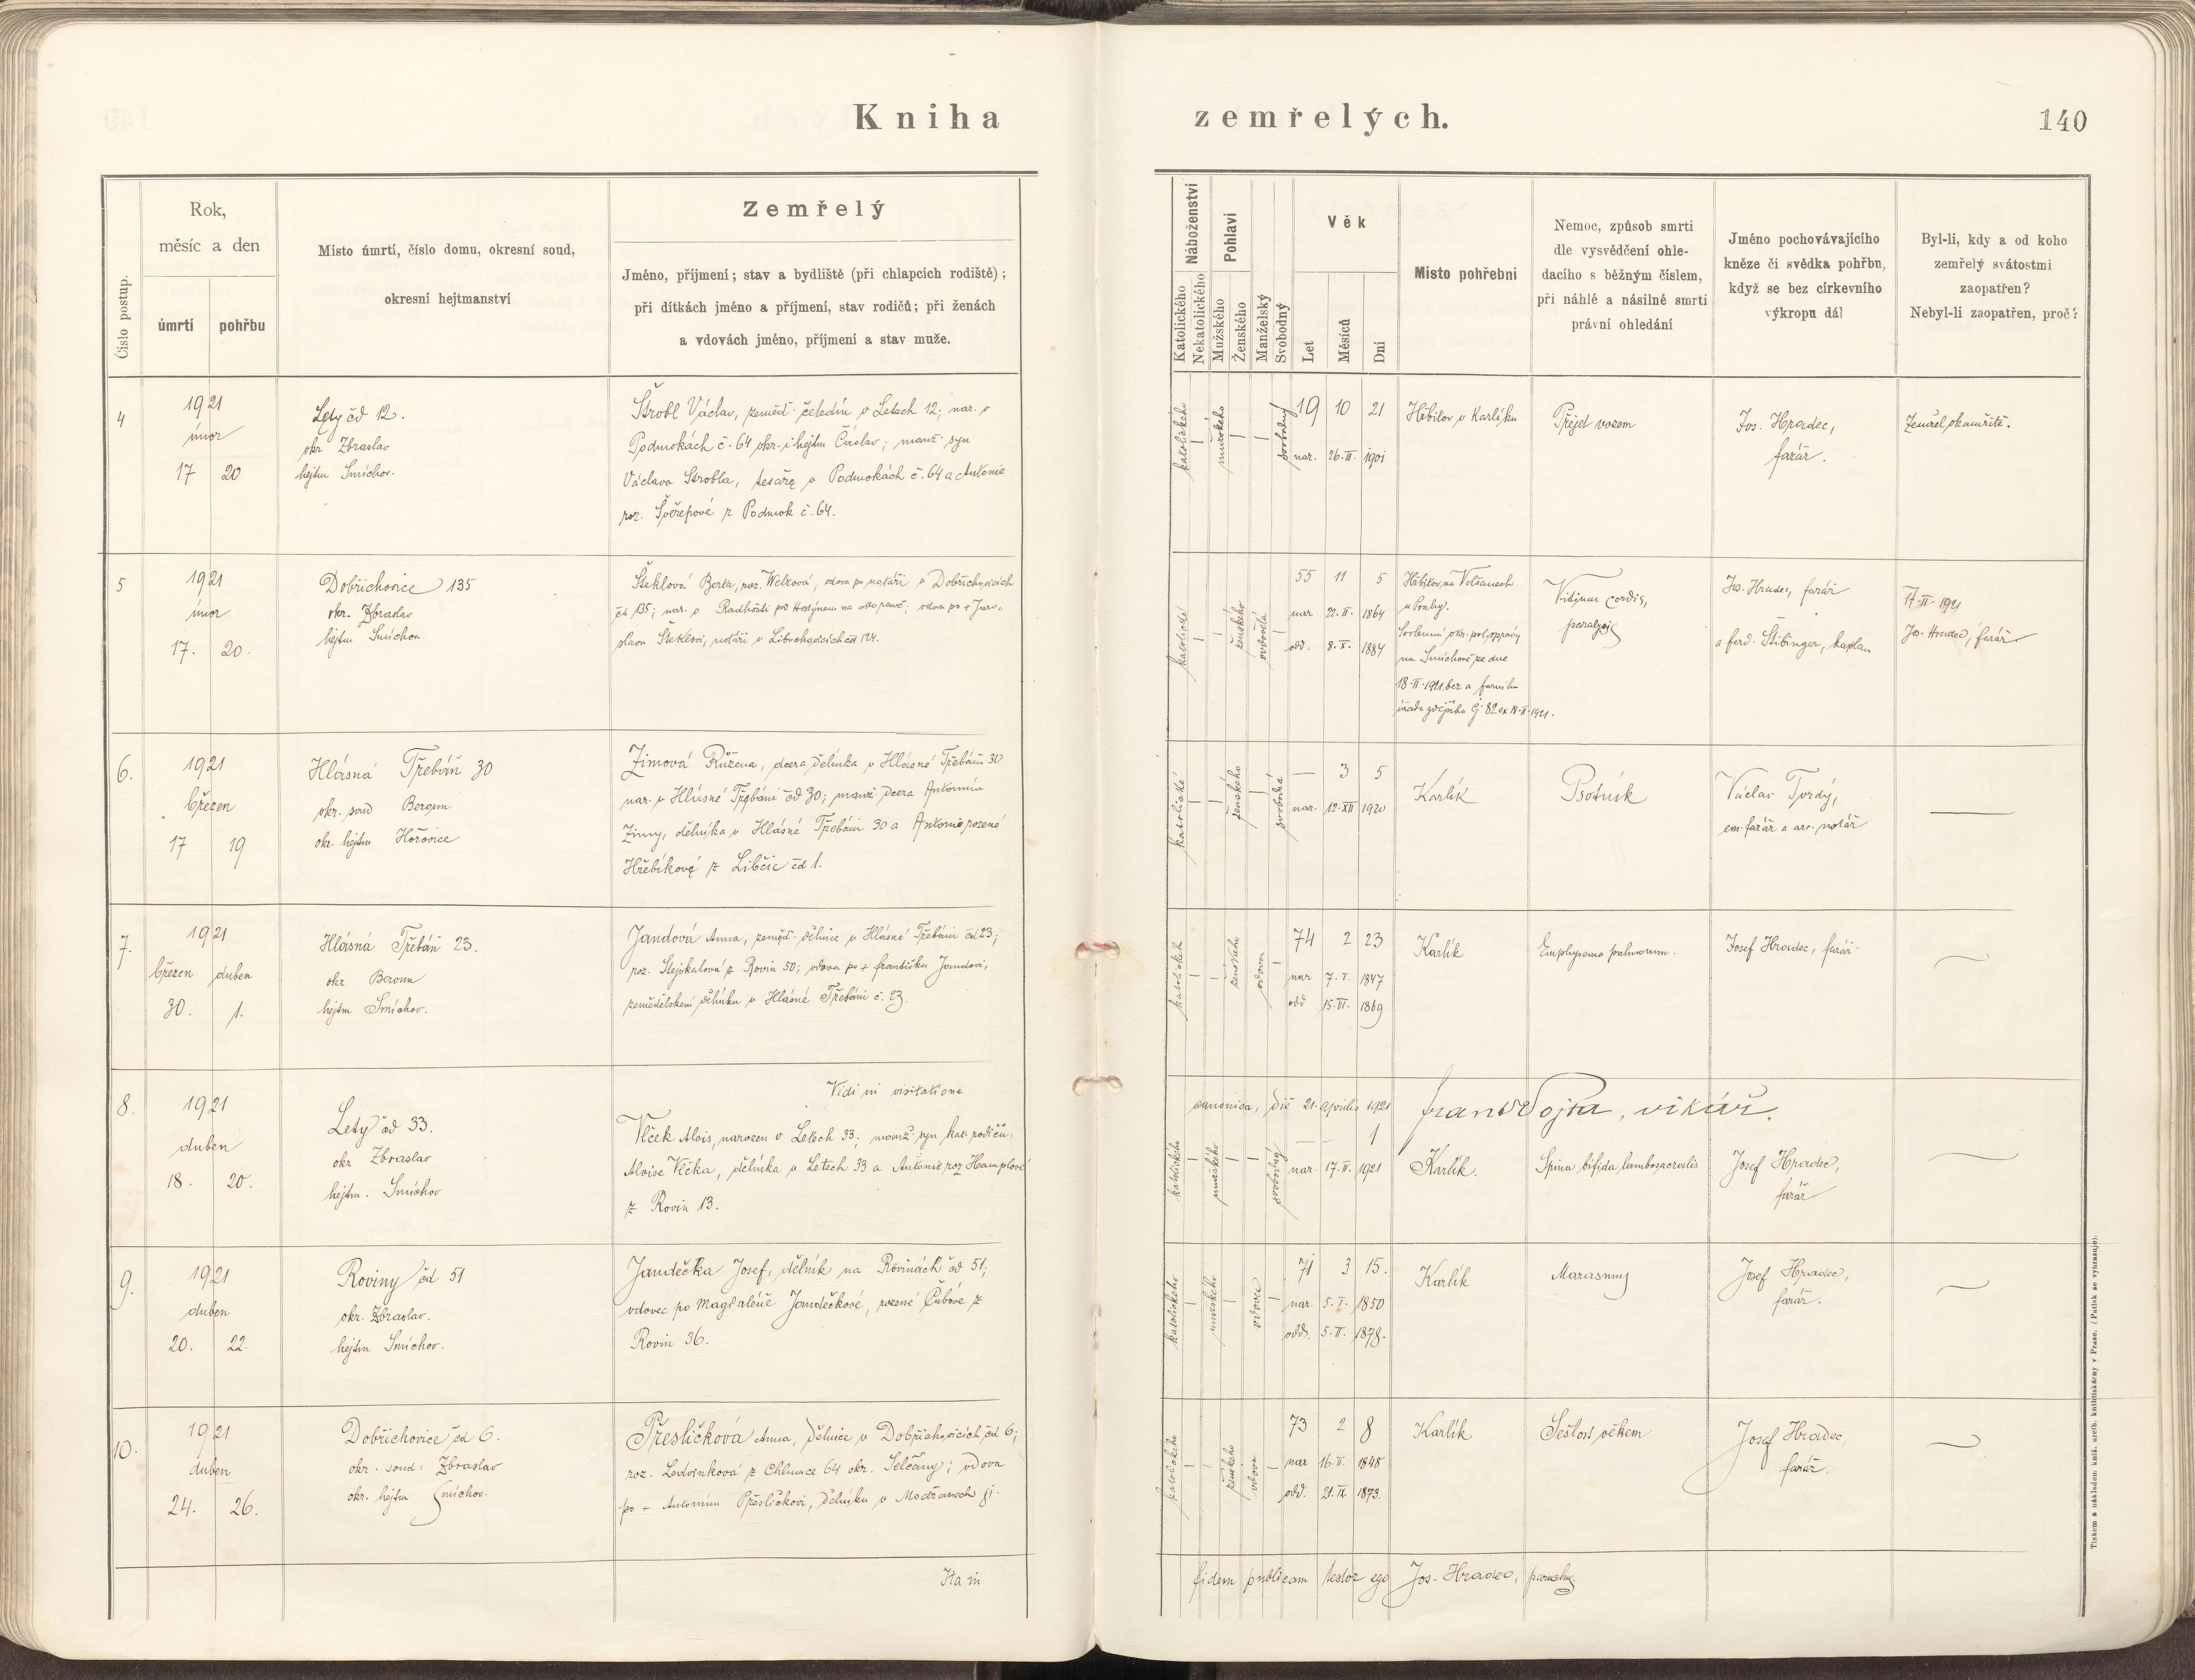 Kniha zemřelých.
140
Číslo postup.
Rok,
měsíc a den
úmrtí
pohřbu
Místo úmrtí, číslo domu, okresní soud,
okresní hejtmanství
Zemřelý
Jméno, příjmení; stav a bydliště (při chlapcích rodiště);
při dítkách jméno a příjmení, stav rodičů; při ženách
a vdovách jméno, příjmení a stav muže.
Náboženství
Katolického
Nekatolického
Pohlaví
Mužského
Ženského
Manželský
Svobodný
Věk
Let
Měsíců
Dní
Místo pohřební
Nemoc, způsob smrti
dle vysvědčení ohle-
dacího s běžným číslem,
při náhlé a násilné smrti
právní ohledání
Jméno pochovávajícího
kněze či svědka pohřbu,
když se bez církevního
výkropu dál
Byl-li, kdy a od koho
zemřelý svátostmi
zaopatřen?
Nebyl-li zaopatřen, proč?
4
1921
únor
17 20
Lety čd 12.
okr Zbraslav
hejtm Smíchov.
Štrobl Václav, zeměd. čeledín v Letech 12; nar. v
Podmokách č. 64 okr. i hejtm Čáslav; manž. syn
Václava Štrobla, tesaře v Podmokách č. 64 a Antonie
roz. Švěřepové z Podmok č. 64.
katolického
mužského
svobodný
19 10 21
nar. 26. III. 1901
Hřbitov v Karlíku
Přejet vozem
Jos. Hradec,
farář.
Zemřel okamžitě.
5
1921
únor
17. 20.
Dobřichovice 135
okr. Zbraslav
hejtm Smíchov.
Šteklová Berta, roz. Welzová, vdova po notáři v Dobřichovicích
čd 135; nar. v Radhošti pod Hostýnem na Moravě; vdova po + Jaro-
slavu Šteklovi, notáři v Libochovicích čd 124.
katolické
ženského
ovdovělá
55 11 5
nar 22. II. 1864
odd. 8. X. 1884
Hřbitov na Volšanech
u Prahy.
Svolením okr. pol. správy
na Smíchově ze dne
18. II. 1921 bez a farního
úřadu zdejšího čj. 82 ex 18. II. 1921.
Vidium cordis,
paralysis
Jos. Hradec, farář
a Ferd. Štibinger, kaplan
17. II. 1921
Jos. Hradec, farář
6.
1921
březen
17 19
Hlásná Třebáň 30
okr. soud Beroun
okr. hejtm Hořovice
Zimová Růžena, dcera dělníka v Hlásné Třebáni 30
nar. v Hlásné Třebáni čd 30; manž. dcera Antonína
Zimy, dělníka v Hlásné Třebáni 30 a Antonie rozené
Hřebíkové z Libčic čd 1.
katolické
ženského
svobodná
— 3 5
nar. 12. XII 1920
Karlík
Psotník
Václav Tvrdý,
em. farář a arc. notář
—
7.
1921
březen duben
30. 1.
Hlásná Třebáň 23.
okr Beroun
hejtm Smíchov.
Jandová Anna, zeměd. dělnice v Hlásné Třebáni čd 23;
roz. Stejskalová z Rovin 50; vdova po + Františku Jandovi,
zemědělském dělníku v Hlásné Třebáni č. 23.
katolické
ženského
vdova
74 2 23
nar 7. I. 1847
odd 15. VI. 1869
Karlík
Emphysema pulmonum.
Josef Hradec, farář.
Vidi in visitatione
canonica, die 21. Aprilis 1921 Franz Vojta, vikář.
8.
1921
duben
18. 20.
Lety čd 33.
okr Zbraslav
hejtm. Smíchov
Vlček Alois, narozen v Letech 33; manž. syn kat. rodičů:
Aloise Vlčka, dělníka v Letech 33 a Antonie roz Hamplové
z Rovin 13.
katolického
mužského
svobodný
— — 1
nar. 17. IV. 1921
Karlík.
Spina bifida lumbosacralis
Josef Hradec,
farář
9.
1921
duben
20. 22.
Roviny čd 51
okr. Zbraslav.
hejtm Smíchov.
Jandečka Josef, dělník na Rovinách čd 51;
vdovec po Magdaléně Jandečkové, rozené Čubové z
Rovin 36.
katolického
mužského
vdovec
71 3 15.
nar. 5. I. 1850
odd. 5. II. 1878.
Karlík
Marasmus
Josef Hradec,
farář.
10.
1921
duben
24. 26.
Dobřichovice čd 6.
okr. soud: Zbraslav
okr. hejtm Smíchov.
Přesličková Anna, dělnice v Dobřichovicích čd 6;
roz. Ledvinková z Chlumce 64 okr. Selčany; vdova
po + Antonínu Přesličkovi, dělníku v Modřanech
katolického
ženského
vdova
73 2 8
nar 16. II. 1848
odd. 21. IX. 1873.
Karlík
Sešlost věkem
Josef Hradec,
farář.
Ita in
fidem publicam testor ego Jos. Hradec, parochus
Tiskem a nákladem knih. arcib. knihtiskárny v Praze. (Patisk se vyhrazuje).